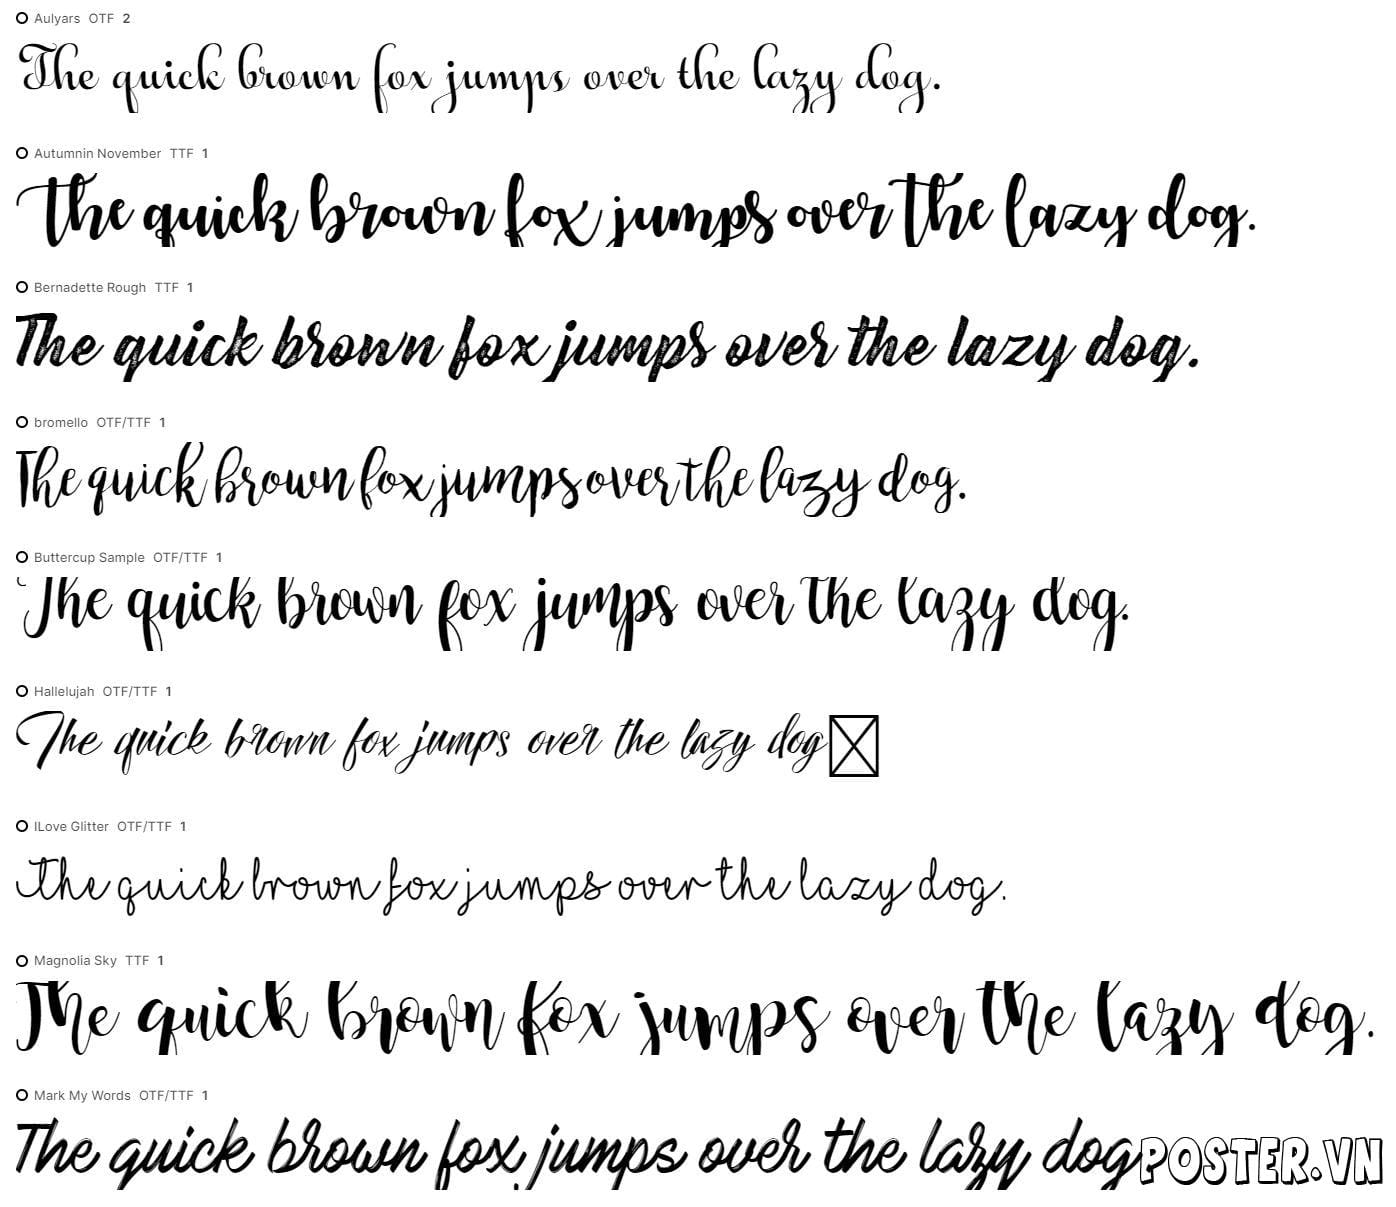 Aulyars OTF 2
The quick brown fox jumps over the lazy dog.
Autumnin November TTF 1
the quick brown fox jumps over the lazy dog.
Bernadette Rough TTF 1
The quick brown fox jumps over the lazy dog.
bromello OTF/TTF 1
The quick brown fox jumps over the lazy dog.
Buttercup Sample OTF/TTF 1
The quick brown fox jumps over the lazy dog.
Hallelujah OTF/TTF 1
The quick brown fox jumps over the lazy dog
ILove Glitter OTF/TTF 1
The quick brown fox jumps over the lazy dog.
Magnolia Sky TTF 1
The quick brown fox jumps over the lazy dog.
Mark My Words OTF/TTF 1
The quick brown fox jumps over the lazy dog
POSTER.VN